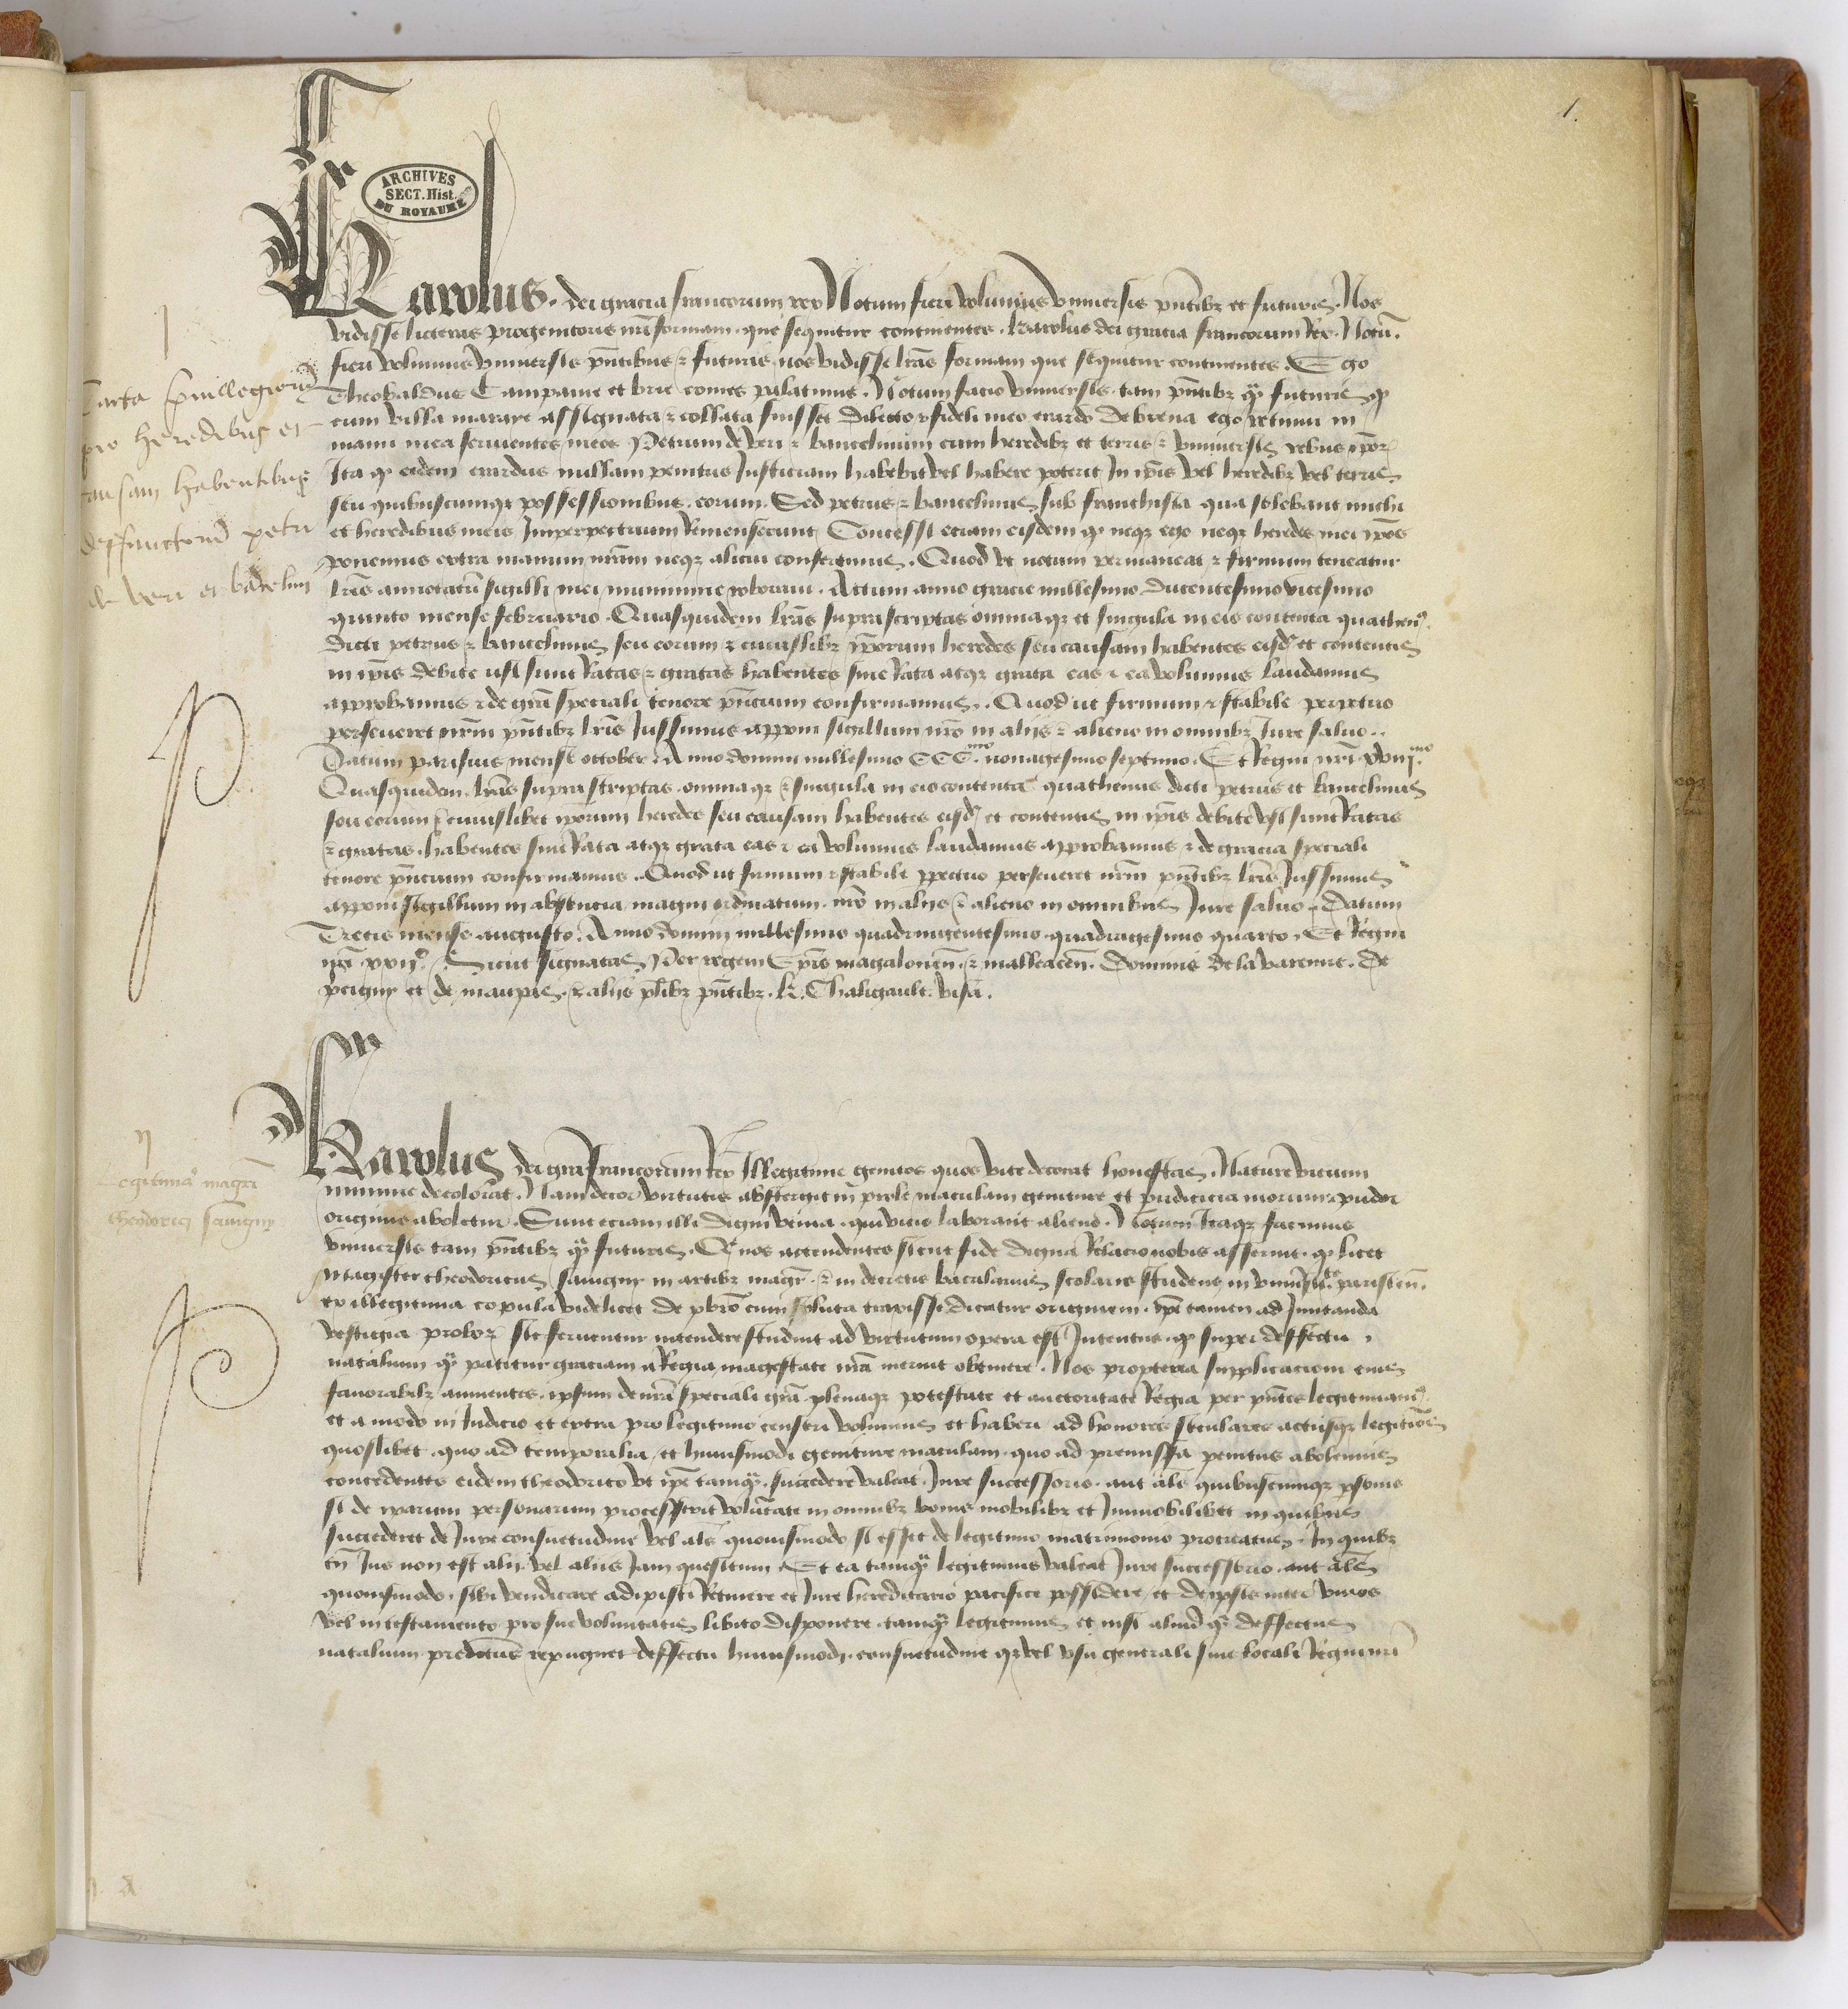 1.
ARCHIVES
SECT. Hist.
DU ROYAUME
Karolus. dei gracia francorum rex Notum fieri volumus universis pñtibz et futuris. Nos
vidisse licteras progenitoris nrĩ formam. que sequitur continentes. Karolus dei gracia francorum Rex. Notũ.
fieri volumus universis pñtibus & futuris. nos vidisse lrãs formam que sequitur continentes. Ego
Theobaldus Campanie et brie comes palatinus. Notum facio universis. tam pñtibz q̃ futuris qp
cum villa maraye assignata & collata fuisset dilecto & fideli meo erardo de brena ego retinui in
manu mea servientes meos Petrum de veri & bancelinum cum heredibz et terris & universis rebus ipor
Ita qp eidem erardus nullam penitus Justiciam habebit vel habere poterit In ip̃is vel heredibz vel terris
seu quibuscumqz possessionibus. eorum. Sed petrus & bancelinus sub franchisia qua solebant michi
et heredibus meis Imperpetuum Remanserunt Concessi eciam eisdem qp neqz ego neqz heredes mei ip̃os
ponemus extra manum nrãm neqz alicui conferemus. Quod ut notum permaneat & firmum teneatur
lrĩs annotatũ sigilli mei munimine roboravi. Actum anno gracie millesimo. ducentesimo vicesimo
quinto mense februario. Quasquidem lrãs suprascriptas omniaqz et singula in eis contenta quathen9.
dicti petrus & bancelinus seu eorum & cuiuslibz ip̃orum heredes seu causam habentes eisd et contentis
in ip̃is debite usi sunt Ratas & gratas habentes sive Rata atqz grata eas & ea volumus laudamus
approbamus & de grã speciali tenore pñcium confirmamus. Quod ut firmum & stabile perpetuo
perseveret nrm̃ pñtibz lrĩs Jussimus apponi sigillum nrõ in aliis & alieno in omnibz Jure salvo..
Datum parisius mense october Anno domini millesimo CCC.mo nonagesimo septimo. Et Regni nrĩ. xviij.mo
Quasquidem. lrãs suprascriptas. omniaqz & singula in eis contenta quathenus dicti petrus et bancelinus
seu eorum & cuiuslibet ip̃orum heredes seu causam habentes eisd et contentis in ip̃is debite usi sunt Ratas
& gratas. habentes sive Rata atqz grata eas & ea volumus laudamus approbamus & de gracia speciali
tenore pñcium confirmamus. Quod ut firmum & stabile ppetuo perseveret nrm̃ pñtibz lrĩs Jussimus
apponi sigillum in absencia magni ordinatum. nrõ in aliis & alieno in omnibus Jure salvo. Datum
Trecis mense augusto. Anno domini millesimo quadringentesimo. quadragesimo quarto. Et Regni
nrĩ xxij. Sicut signatas Per regem Ep̃is magalonen̄. & malleacen̄. Dominis de la varenne. De
precigny et de maupas. & aliis plibz pñtibz. K. Chaligault. visa.
I
Carta privillegiorum
pro heredibus et
causam habentibus
deffunctorũ petri
de veri et bãcelini
Karolus dei grã francorum Rex Illegitime genitos quos vite decorat honestas. Nature vicium
minime decolorat. Nam decor virtutis abstergit in prole maculam geniture et pudicicia morum pudor
originis aboletur. Sunt eciam illi digni venia. qui vicio laborant alieno. Notum Itaqz facimus
universis tam pñtibz q̃ futuris. Q nos attendentes sicut fide digna Relacio nobis asseruit. qp licet
Magister theodoricus savigny in artibz magr̃. & in decretis bacalarius scolaris studens in univers.te parisien̄.
ex illegitima copula videlicet de pbrõ cum soluta traxisse dicatur originem. ip̃e tamen ad Imitanda
vestigia proboꝝ sic ferventer intendere studuit ad virtutum opera est Intentus. qp super deffectu
natalium q̃ patitur graciam a Regia magestate nrã meruit obtinere. Nos propterea supplicacioni eius
favorabilr annuentes. ipsum de nrã speciali grã plenaqz potestate et auctoritate Regia per pñtes legitimam9
et a modo in Judicio et extra pro legitimo censeri volumus et haberi ad honores seculares actusqz legitimos
quoslibet. quo ad temporalia et huiusmodi geniture maculam. quo ad premissa penitus abolemus
concedentes eidem theodorico ut ip̃e tamq̃. succedere valeat. Jure successorio. aut als̃ quibuscumqz psonis
si de ip̃arum personarum processerit volũtate in omnibz bonis mobilibz et Immobilibus in quibus
succederet de Jure consuetudine vel als̃ quovismodo si esset de legitimo matrimonio procreatus. In quibz
tñ Jus non est alii. vel aliis Jam quesitum. Et ea tamq̃ legitimus valeat Jure successorio. aut als̃
quovismodo. sibi vendicare adipisci Retinere et Jure hereditario pacifice possidere et de ipsis inter vivos
vel in testamento pro sue voluntatis libito disponere. tamq̃ legitimus et nisi aliud q̃ deffectus
natalium predictus repugnet deffectu huiusmodi. consuetudine qz vel usu generali sive locali Regni nri
II
Legitima9 magrĩ
theodorici savigny